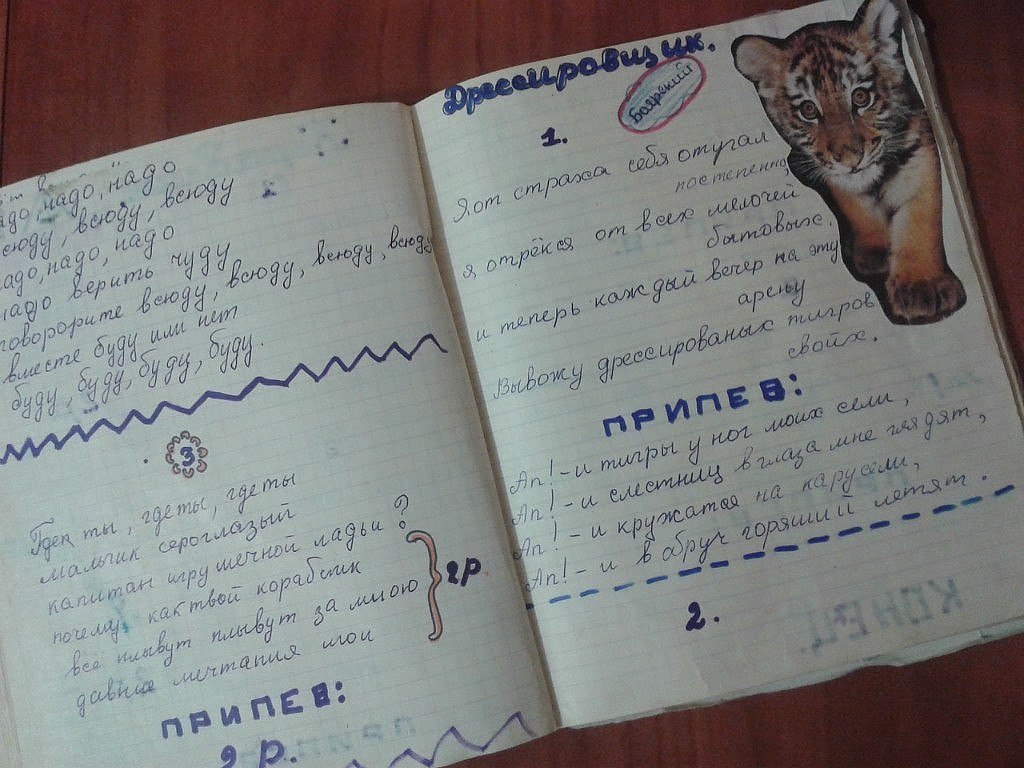 надо, надо, надо
всюду, всюду, всюду
надо, надо, надо
надо верить чуду
говорорите всюду, всюду, всюду, всюду
вместе буду или нет
буду, буду, буду, буду.
3
Где ты, где ты, где ты
мальчик сероглазый
капитан игрушечной ладьи?
почему, как твой кораблик
всё плывут плывут за мною
давние мечтания мои
2р
ПРИПЕВ:
2 р.
Дрессировщик.
Боярский
1.
Я от страха себя отугал
постепенно,
я отрёкся от всех мелочей
бытовых.
и теперь каждый вечер на эту
арену
Вывожу дрессированых тигров
свойх.
ПРИПЕВ:
Ап! - и тигры у ног моих сели,
Ап! - и слестниц в глаза мне глядят,
Ап! - и кружатся на карусели,
Ап! - и в обруч горящий летят.
2.
КОНЕЦ